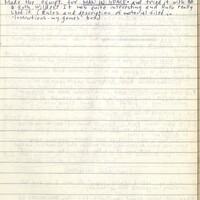 Made the equipt. for MAN IN SPACE and tried it with BB
& Ruth Wildes! It was quite interesting and Ruth really
liked it. (Rules and description of material filed in
"Instructions-my games" book)